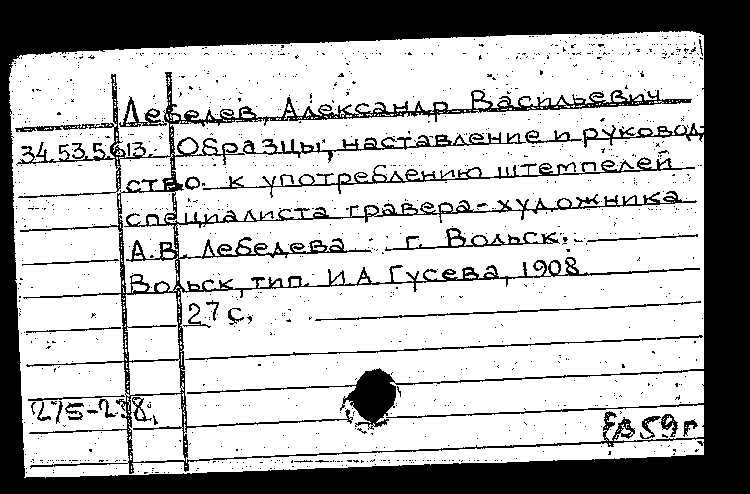 Лебедев, Александр Васильевич
34.53.5.613. Образцы, наставление и руковод-
ство к употреблению штемпелей
специалиста гравера-художника
А.В. Лебедева г. Вольск.
Вольск, тип. И.А. Гусева, 1908
27 с.
275-238,
59г